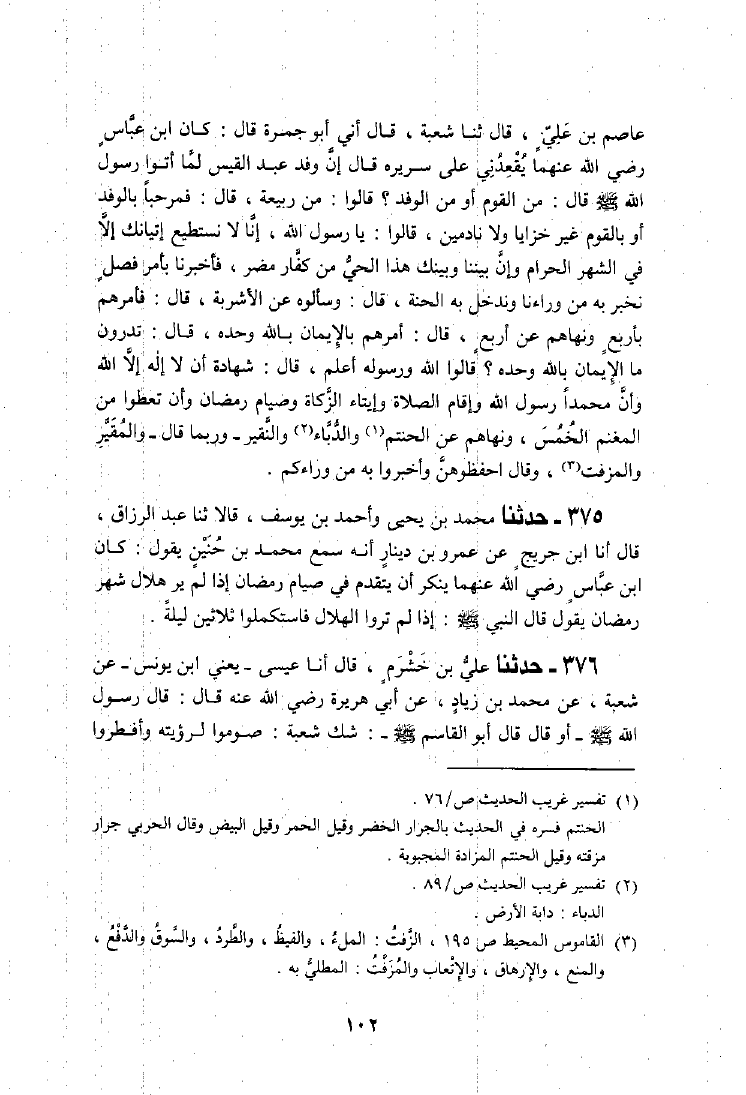 عاصم بن عَليّ ، قال ثنا شعبة ، قال أني أبو جمرة قال : كان ابن عبَّاسٍ
رضي الله عنهما يُقْعِدُنِي على سريره قال إنَّ وفد عبد القيس لمَّا أتوا رسول
الله ﷺ قال : من القوم أو من الوفد ؟ قالوا : من ربيعة ، قال : فمرحباً بالوفد
أو بالقوم غير خزايا ولا نادمين ، قالوا : يا رسول الله ، إنَّا لا نستطيع إتيانك إلَّا
في الشهر الحرام وإنَّ بيننا وبينك هذا الحيُّ من كفَّار مضر ، فأخبرنا بأمر فصلٍ
نخبر به من وراءنا وندخل به الجنة ، قال : وسألوه عن الأشربة ، قال : فأمرهم
بأربعٍ ونهاهم عن أربعٍ ، قال : أمرهم بالإيمان بالله وحده ، قال : تدرون
ما الإيمان بالله وحده ؟ قالوا الله ورسوله أعلم ، قال : شهادة أن لا إله إلَّا الله
وأنَّ محمداً رسول الله وإقام الصلاة وإيتاء الزَّكاة وصيام رمضان وأن تعطوا من
المغنم الخُمُسَ ، ونهاهم عن الحنتم(١) والدُّبَّاء(٢) والنَّقير ـ وربما قال ـ والمُقَيَّرِ
والمزفت(٣) ، وقال احفظوهنَّ وأخبروا به من وراءكم .
٣٧٥ ـ حدثنا محمد بن يحيى وأحمد بن يوسف ، قالا ثنا عبد الرزاق ،
قال أنا ابن جريجٍ عن عمرو بن دينارٍ أنه سمع محمد بن حُنَيْنٍ يقول : كان
ابن عبَّاسٍ رضي الله عنهما ينكر أن يتقدم في صيام رمضان إذا لم ير هلال شهر
رمضان يقول قال النبي ﷺ : إذا لم تروا الهلال فاستكملوا ثلاثين ليلةً .
٣٧٦ ـ حدثنا عليُّ بن خَشْرَمٍ ، قال أنا عيسى ـ يعني ابن يونس ـ عن
شعبة ، عن محمد بن زيادٍ ، عن أبي هريرة رضي الله عنه قال : قال رسول
الله ﷺ ـ أو قال قال أبو القاسم ﷺ ـ : شك شعبة : صوموا لرؤيته وأفطروا
(١) تفسير غريب الحديث ص/٧٦ .
الحنتم فسره في الحديث بالجرار الخضر وقيل الحمر وقيل البيض وقال الحربي جرار
مزفته وقيل الحنتم المزادة المجبوبة .
(٢) تفسير غريب الحديث ص/٨٩ .
الدباء : دابة الأرض .
(٣) القاموس المحيط ص ١٩٥ ، الزَّفتُ : الملءُ ، والغيظُ ، والطَّردُ ، والسَّوقُ والدَّفْعُ ،
والمنع ، والإرهاق ، والإتْعاب والمُزَفْتُ : المطليُّ به .
١٠٢